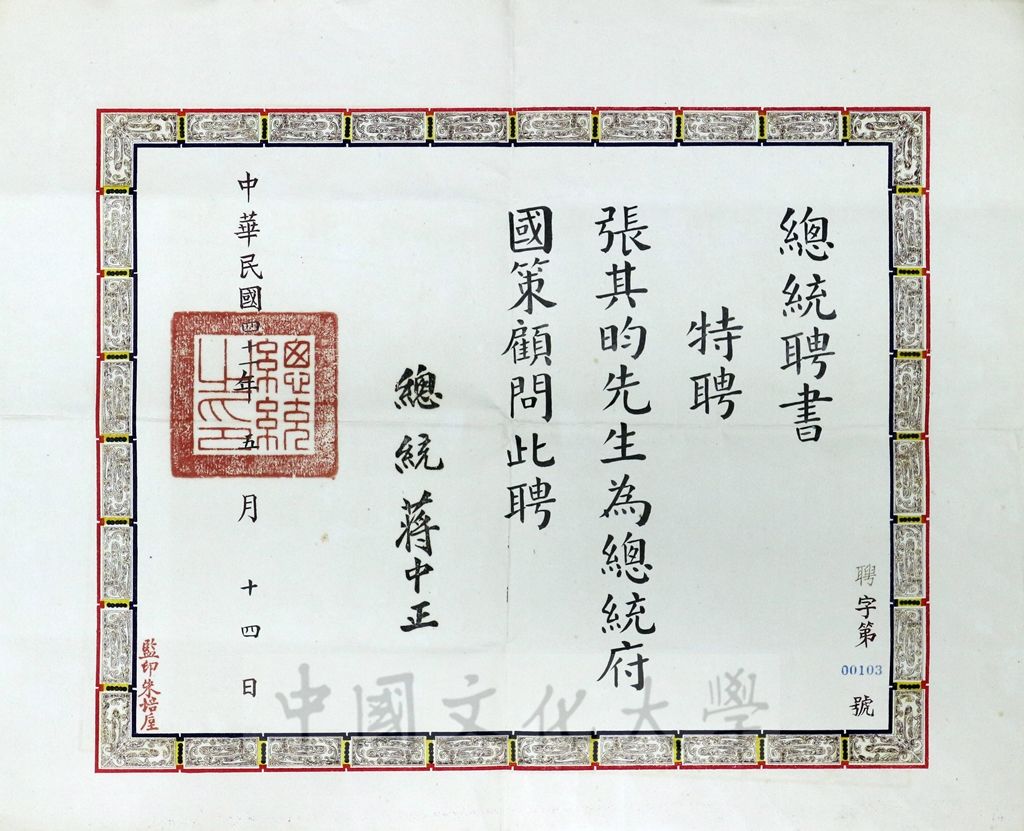 總統聘書
特聘
張其昀先生為總統府
國策顧問此聘
總統 蔣中正
中華民國四十一年 五 月 十四 日
總統之印
聘字第 00103 號
監印朱培垕
中國文化大學